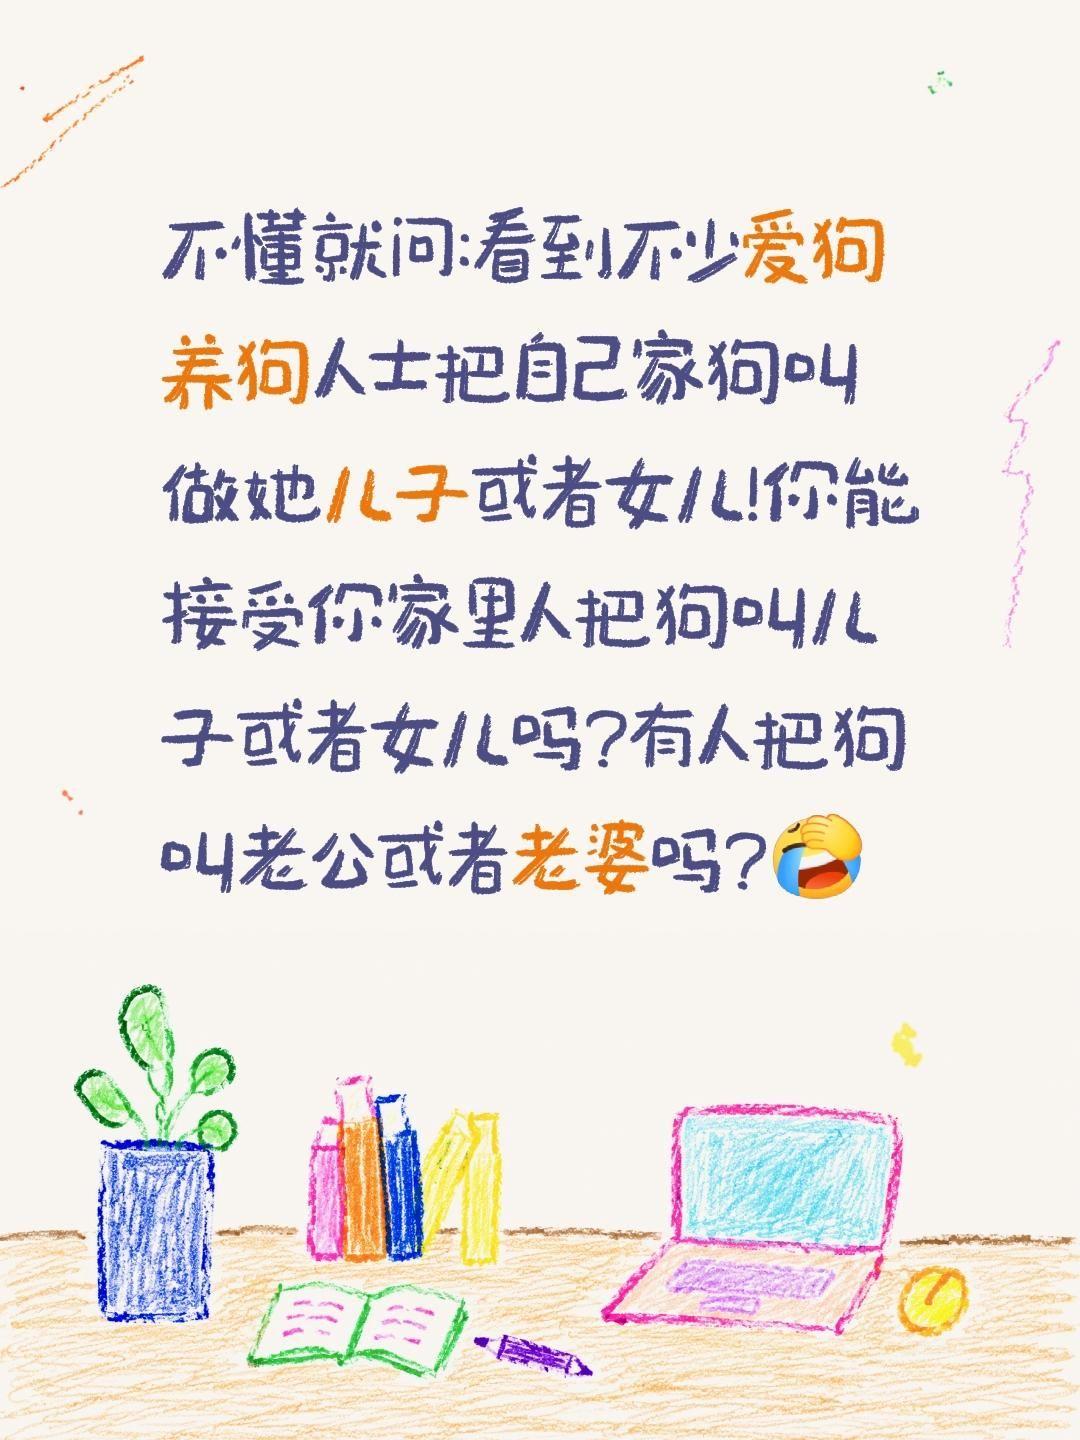 不懂就问:看到不少爱狗
养狗人士把自己家狗叫
做她儿子或者女儿!你能
接受你家里人把狗叫儿
子或者女儿吗?有人把狗
叫老公或者老婆吗?🤣